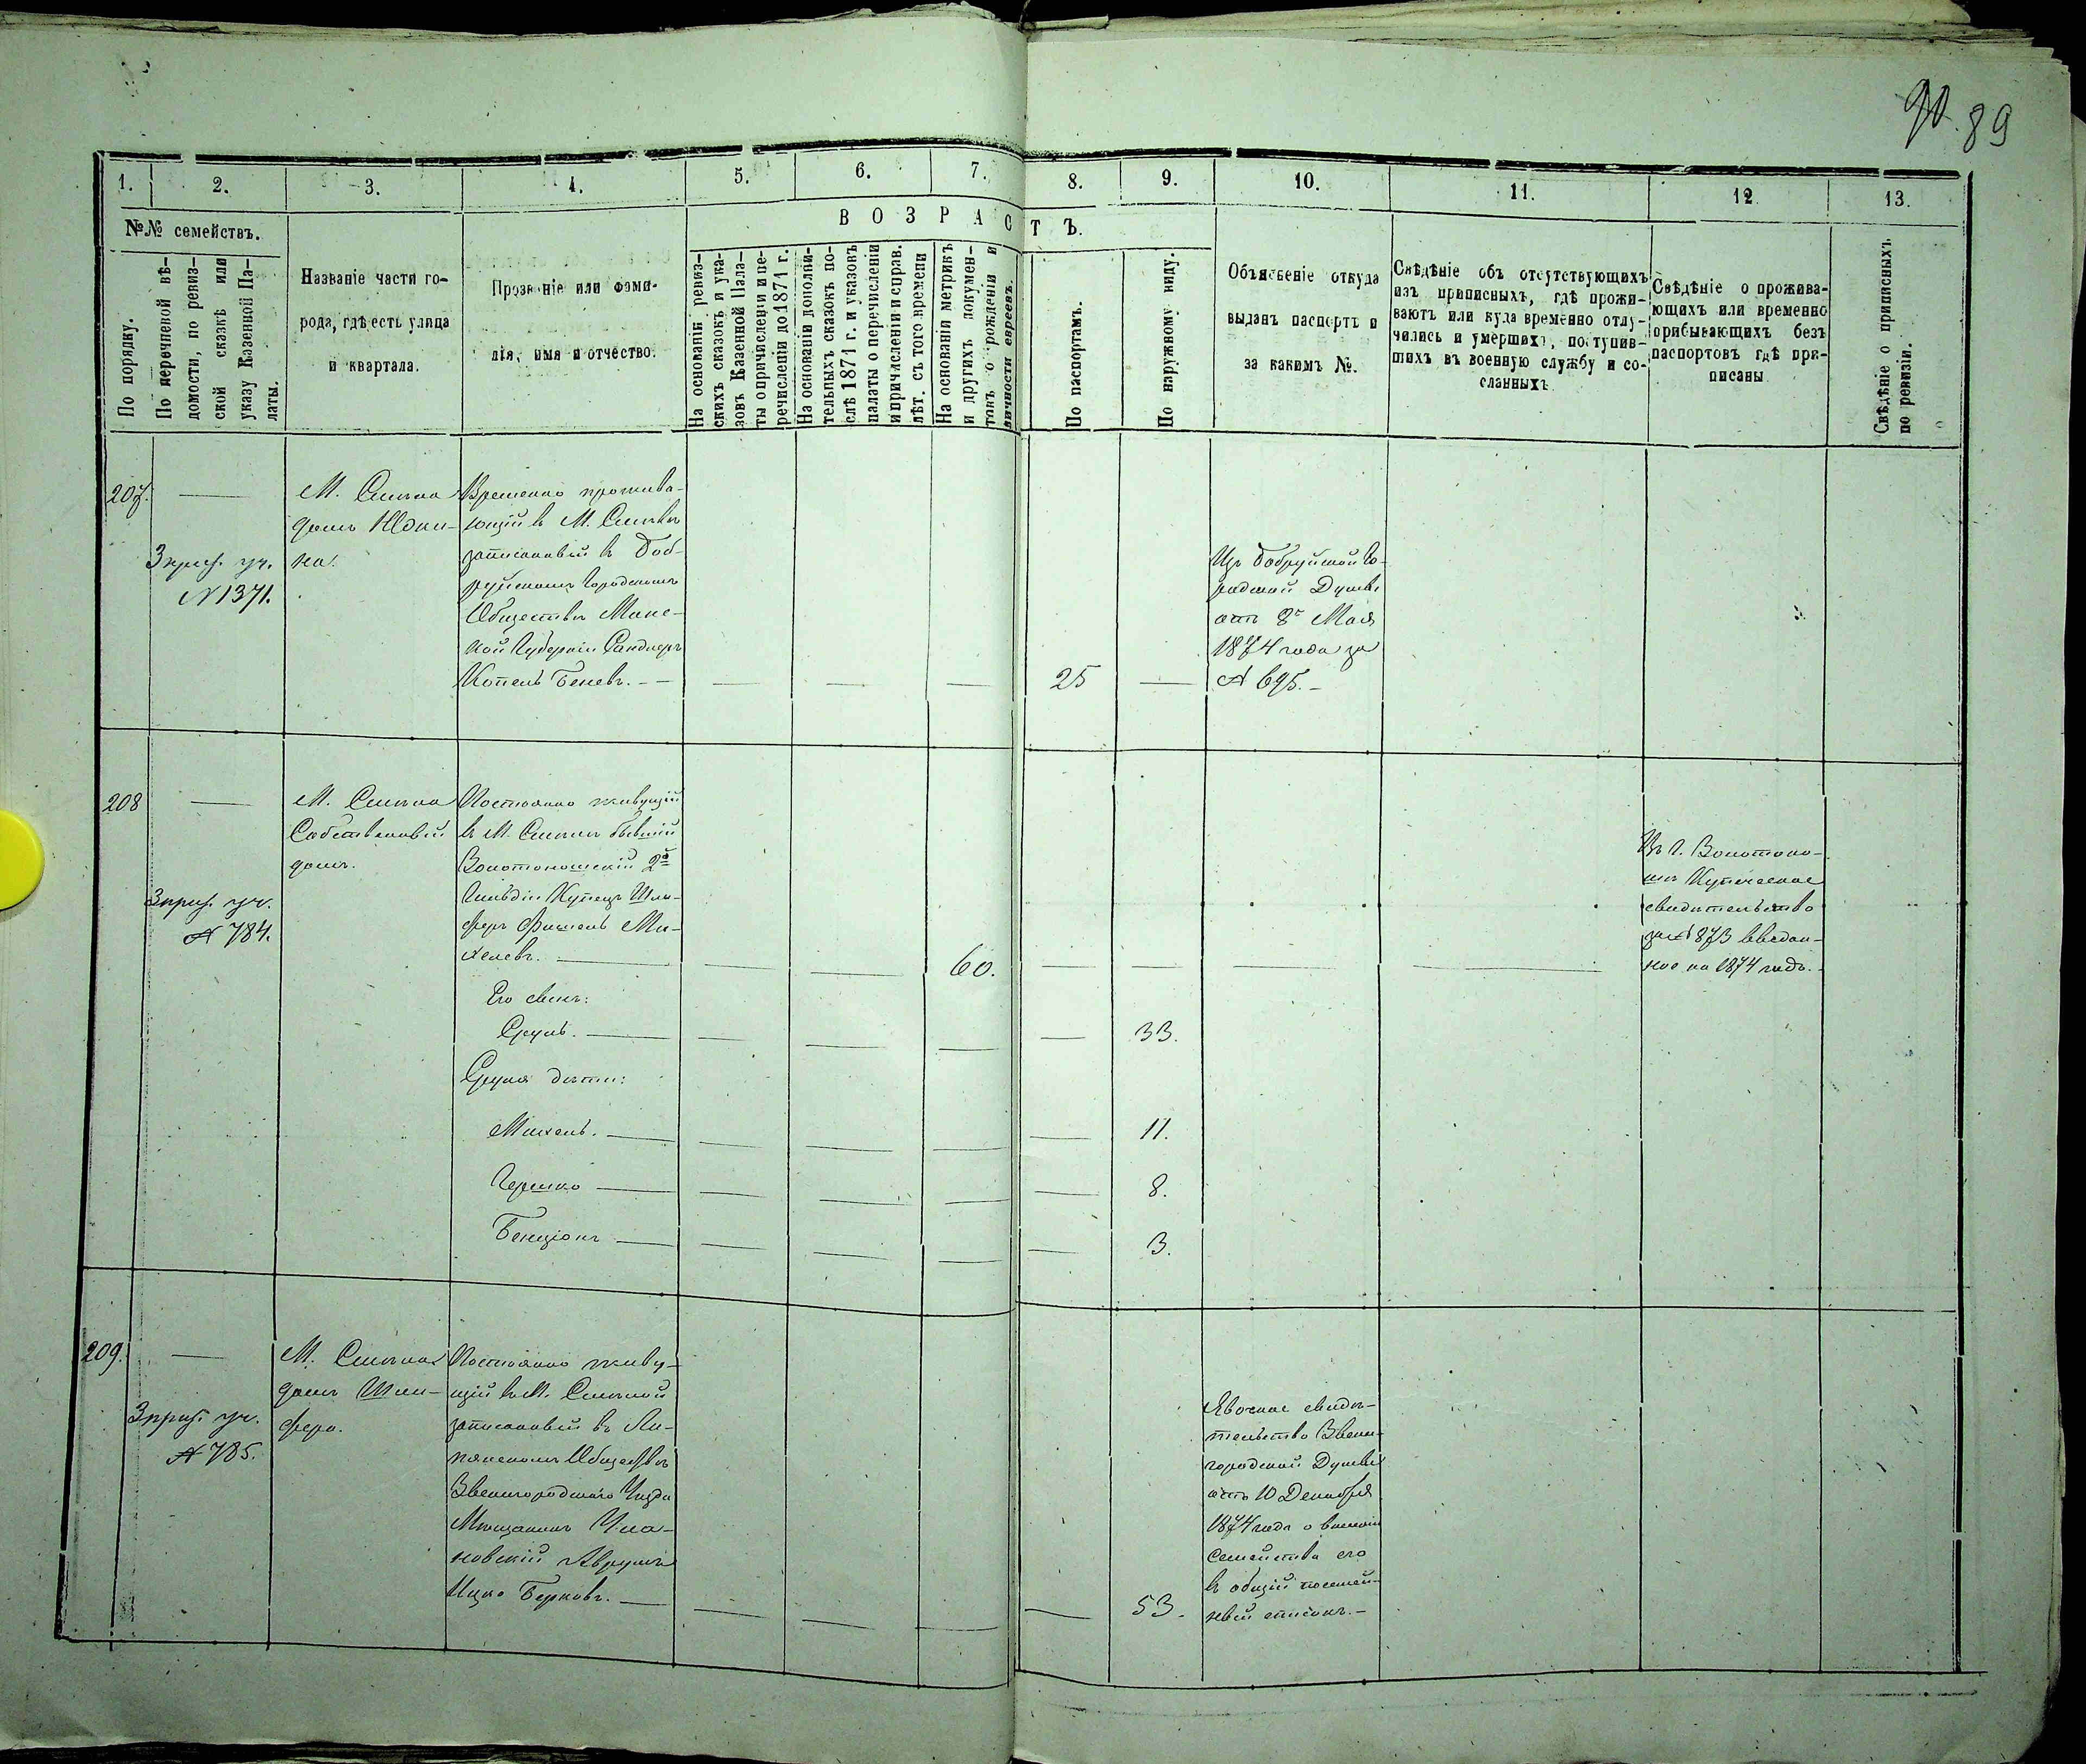 90. 89
1. 2. 3. 4. 5. 6. 7. 8. 9. 10. 11. 12 13.
№№ семействъ.
По порядку.
По перечневой вѣ-
домости, по ревиз-
ской сказкѣ или
указу Казенной Па-
латы.
Названіе части го-
рода, гдѣ есть улица
и квартала.
Прозваніе или фами-
лія, имя и отчество.
ВОЗРАСТЪ.
На основаніи ревиз-
скихъ сказокъ и ука-
зовъ Казенной Пала-
ты о причисленіи и пе-
речисленіи до 1871 г.
На основаніи дополни-
тельныхъ сказокъ по-
слѣ 1871 г. и указокъ
палаты о перечисленіи
и причисленіи и справ.
лѣт. съ того времени
На основаніи метрикъ
и другихъ докумен-
товъ о рожденіи и
личности евреевъ.
По паспортамъ.
По наружному виду.
Объясненіе откуда
выданъ паспортъ и
за какимъ №.
Свѣдѣніе объ отсутствующихъ
изъ приписныхъ, гдѣ прожи-
ваютъ или куда временно отлу-
чились и умершихъ, поступив-
шихъ въ военную службу и со-
сланныхъ.
Свѣдѣніе о прожива-
ющихъ или временно
прибывающихъ безъ
паспортовъ гдѣ при-
писаны
Свѣдѣніе о приписныхъ
по ревизіи.
207.
3 приз. уч.
№ 1371.
М. Смѣла
домъ
Временно прожива-
ющій в М. Смѣлѣ
записанный в Боб-
руйскомъ Городскомъ
Обществѣ Минс-
кой Губерніи Сандлеръ
Копель Беневъ. — —
25
Изъ Бобруйской Го-
родской Думы
отъ 8го Мая
1874 года за
№ 695. —
208
3 приз. уч.
№ 784.
М. Смѣла
Собственный
домъ.
Постоянно живущій
в М. Смѣлѣ бывшій
Золотоношскій 2й
Гильдіи Купецъ
Фишель Ми-
хелевъ.
60.
Въ г. Золотоно-
шѣ Купеческое
свидѣтельство
за № 873 выдан-
ное на 1874 годъ.
Его сынъ:
Сруль. 33.
Сруля дѣти:
Михель. 11.
Гершко 8.
Бенціонъ 3.
209.
3 приз. уч.
№ 785.
М. Смѣла
домъ Шли-
фера.
Постоянно живу-
щій в М. Смѣлой
записанный въ Ли-
сянскомъ Обществѣ
Звенигородскаго Уѣзда
Мѣщанинъ Ула-
новскій Аврумъ
Ицко Берковъ. —
53.
Явочное свидѣ-
тельство Звени-
городской Думы
отъ 10 Декабря
1874 года о внесеніи
Семейства его
в общій посемей-
ный списокъ. —